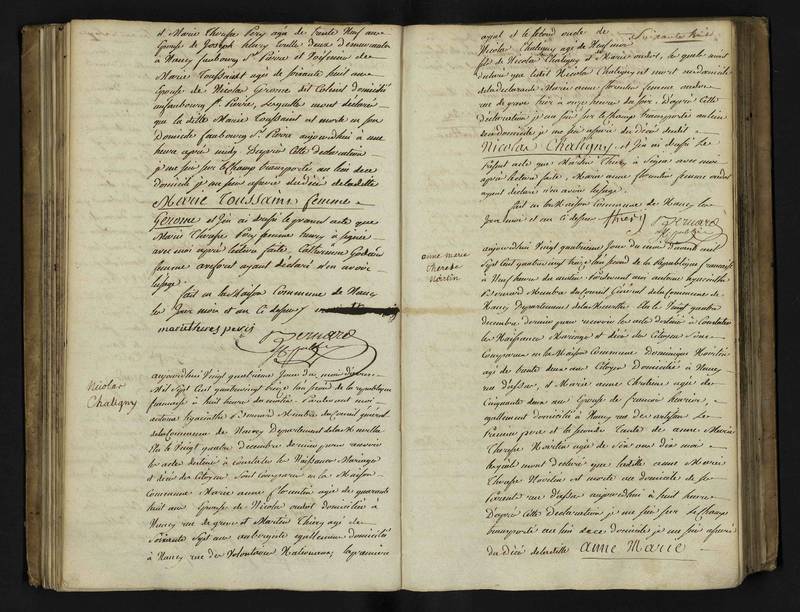 et Marie Therese Pery agée de trente Neuf ans
Epouse de Joseph henry tonile deux demeurante
à Nancy faubourg St. Pierre et
Marie Toussaint agée de soixante huit ans
Epouse de Nicolas Gerome dit Colin domicilié
au faubourg St. Pierre, Laquelle mont déclaré
que la ditte Marie Toussaint est morte en son
Domicile faubourg St. Pierre aujourdhui à une
heure après midy. Dapres Cette declaration
je me suis sur le champ transporté au lieu de ce
domicile je me suis assuré du décé de ladite
Marie Toussaint femme
Gerome et jen ai dressé le present acte que
Marie Therese Pery femme henry à signé
avec moi après lecture faite, Catherine Godard
femme ayant déclaré n'en avoir
lusage.
fait en la Maison Commune de Nancy
les Jour mois et an Ci dessus
marie theres pery
Bernard
off. public
Nicolas
Chaligny
aujourdhui Vingt quatrieme Jour du mois
Mil Sept Cent quatrevingt treize lan second de la republique
francaise à huit heures du matin. Pardevant moi
antoine hyacinthe Bernard Membre du Conseil général
de la Commune de Nancy Departement de la Meurthe
Elu le Vingt quatre décembre dernier pour recevoir
les actes destinés à Constater les Naissances Mariages
et décés des Citoyens. Sont Comparus en la Maison
Commune Marie anne florentin agée de quarante
huit ans Epouse de Nicolas oudot domiciliée à
Nancy rue de greve et Martin Thiery agé de
Soixante Sept ans aubergiste egallement domicilié
à Nancy rue des Volontaires Nationaux, la premiere
ayeul et le second oncle de
Nicolas Chaligny agé de Neuf mois
fils de Nicolas Chaligny et Marie oudot, lesquels mont
declaré que ledit Nicolas Chaligny est mort au domicile
de la declarante Marie anne florentin femme oudot
rue de greve hier à onze heures du soir. Dapres Cette
Declaration je me suis sur le champ transporté au lieu
de ce domicile je me suis assuré du décé dudit
Nicolas Chaligny et jen ai dressé Le
Present acte que Martin Thiery à Signé avec moi
après lecture faite, Marie anne florentin femme oudot
ayant declaré n'en avoir lusage.
fait en la Maison Commune de Nancy les
Jour mois et an Ci dessus
thiery
Bernard
off. public
anne marie
Therese
Martin
aujourdhui Vingt quatrieme Jour du mois davril mil
Sept Cent quatrevingt treize lan second de la Republique francaise
à Neuf heures du matin. Pardevant moi antoine hyacinthe
Bernard Membre du Conseil Général de la Commune de
Nancy Departement de la Meurthe Elu le Vingt quatre
décembre dernier pour recevoir les actes destinés à Constater
les Naissances Mariages et décés des Citoyens Sont
Comparus en la Maison Commune Dominique Martin
agé de trente deux ans Citoyen Domicilié à Nancy
rue et Marie Chretien agée de
Cinquante deux ans Epouse de francois henrion,
egallement domiciliée à Nancy rue des artisans Le
Premier pere et la seconde tante de anne Marie
Therese Martin agée de Six ans dix mois
lesquels mont declaré que ladite anne Marie
Therese Martin est morte au domicile de ses
Parents rue aujourdhui à huit heures
Dapres Cette Declaration je me suis sur le Champ
transporté au lieu de ce domicile je me suis assuré
du Décé de ladite anne Marie